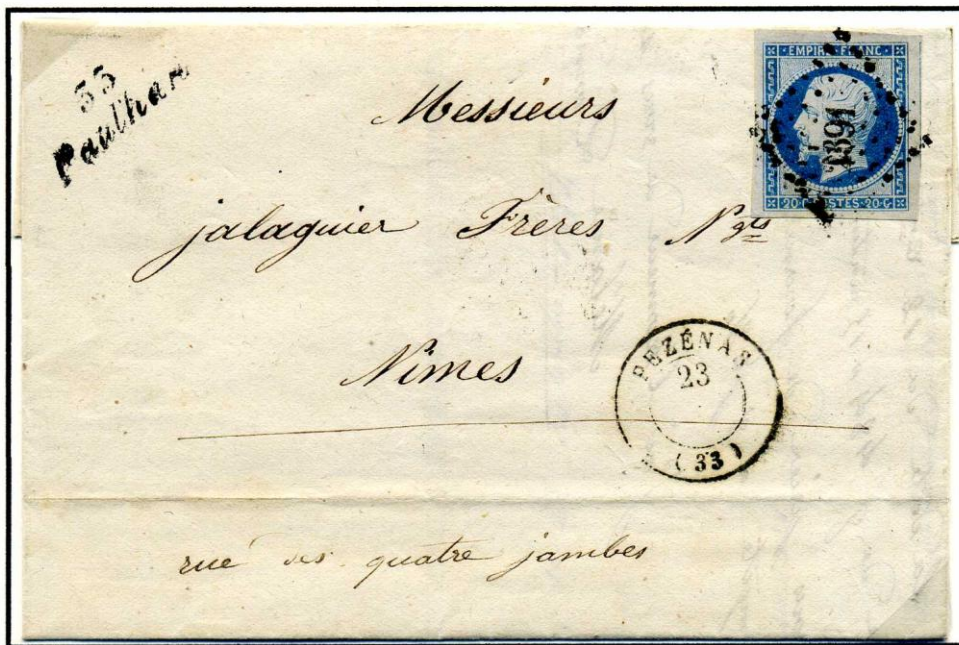 33
Paulhan
EMPIRE FRANC
1391
20 C POSTES 20 C
Messieurs
jalaguier Frères Ngts
Nimes
PEZÉNAS
23
(33)
rue des quatre jambes